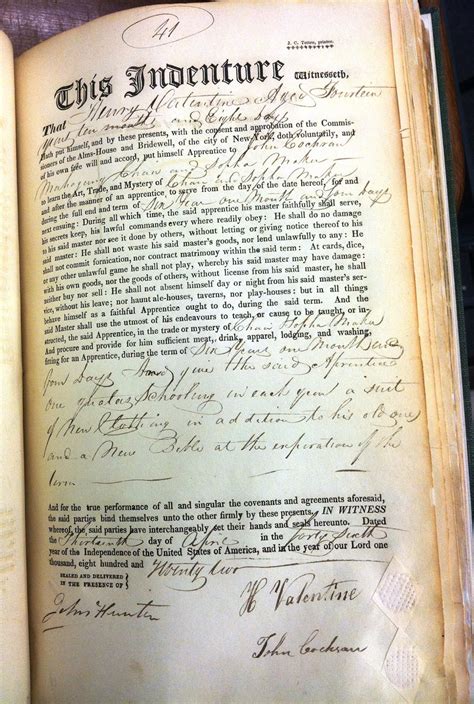 41
J. C. Totten, printer.
This Indenture Witnesseth,
That Henry Valentine Aged Fourteen
years ten months and Eight days
hath put himself, and by these presents, with the consent and approbation of the Commis-
sioners of the Alms-House and Bridewell, of the city of New-York, doth voluntarily, and
of his own free will and accord, put himself Apprentice to John Cochran
Mahogany Chair and Sopha Maker
to learn the Art, Trade, and Mystery of Chair and Sopha Maker
and after the manner of an apprentice to serve from the day of the date hereof, for and
during the full end and term of Six Year one Month and four days
next ensuing: During all which time, the said apprentice his master faithfully shall serve,
his secrets keep, his lawful commands every where readily obey: He shall do no damage
to his said master nor see it done by others, without letting or giving notice thereof to his
said master: He shall not waste his said master's goods, nor lend unlawfully to any: He
shall not commit fornication, nor contract matrimony within the said term: At cards, dice,
or any other unlawful game he shall not play, whereby his said master may have damage:
with his own goods, nor the goods of others, without license from his said master, he shall
neither buy nor sell: He shall not absent himself day or night from his said master's ser-
vice, without his leave; nor haunt ale-houses, taverns, nor play-houses: but in all things
behave himself as a faithful Apprentice ought to do, during the said term. And the
said Master shall use the utmost of his endeavours to teach, or cause to be taught, or in-
structed, the said Apprentice, in the trade or mystery of Chair Sopha Maker
And procure and provide for him sufficient meat, drink, apparel, lodging, and washing,
fitting for an Apprentice, during the term of Six Years one Month and
four days And give the said Aprentice
one quaters Schooling in each year a suit
of New Clothing in addition to his old ones
and a New Bible at the expiration of the
term
And for the true performance of all and singular the covenants and agreements aforesaid,
the said parties bind themselves unto the other firmly by these presents, IN WITNESS
whereof, the said parties have interchangeably set their hands and seals hereunto. Dated
the Thirteenth day of April in the forty Sixth
year of the Independence of the United States of America, and in the year of our Lord one
thousand, eight hundred and Twenty two
SEALED AND DELIVERED
IN THE PRESENCE OF
H Valentine
John Hunter
John Cochran